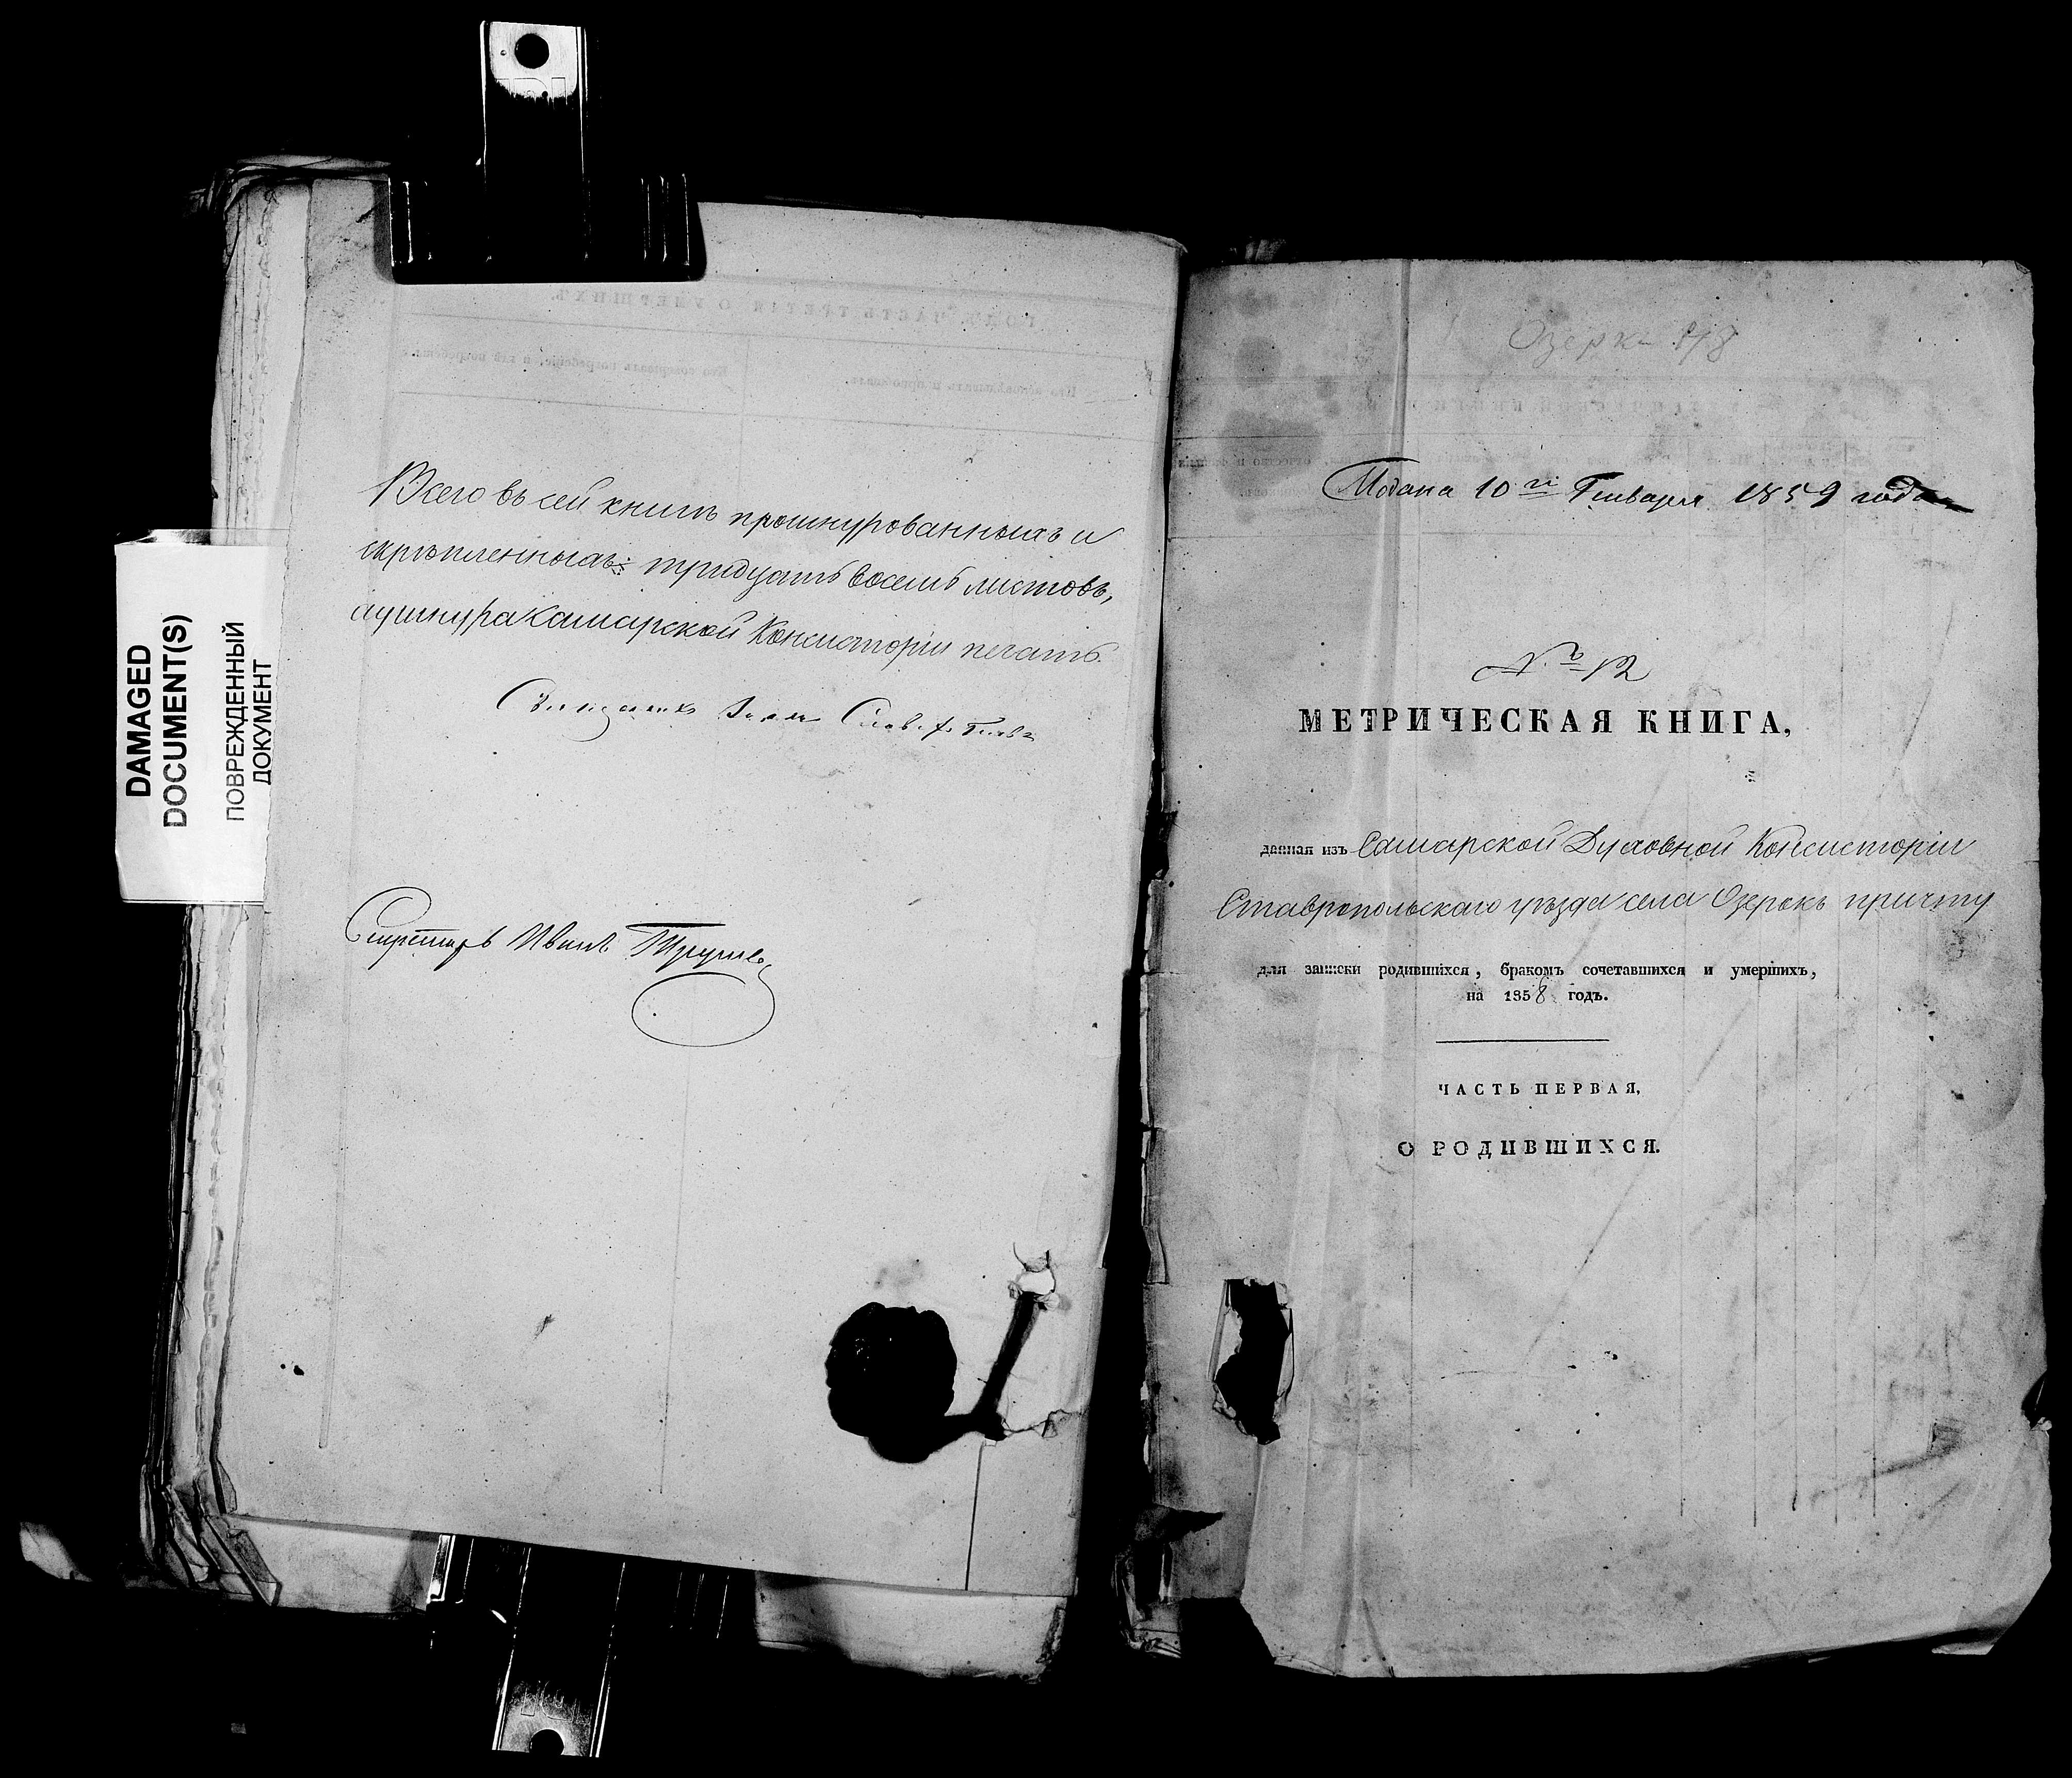 DAMAGED
DOCUMENT(S)
ПОВРЕЖДЕННЫЙ
ДОКУМЕНТ
Всего въ сей книгѣ прошнурованныхъ и
скрѣпленныхъ тридцать восемь листовъ,
а у шнура Самарской Консисторіи печать.
Секретарь Иванъ
Озерки
Подана 10го Генваря 1859 года
№ 12
МЕТРИЧЕСКАЯ КНИГА,
данная изъ Самарской Духовной Консисторіи
Ставропольскаго уѣзда села Озерокъ причту
для записки родившихся, бракомъ сочетавшихся и умершихъ,
на 1858 годъ.
ЧАСТЬ ПЕРВАЯ,
О РОДИВШИХСЯ.